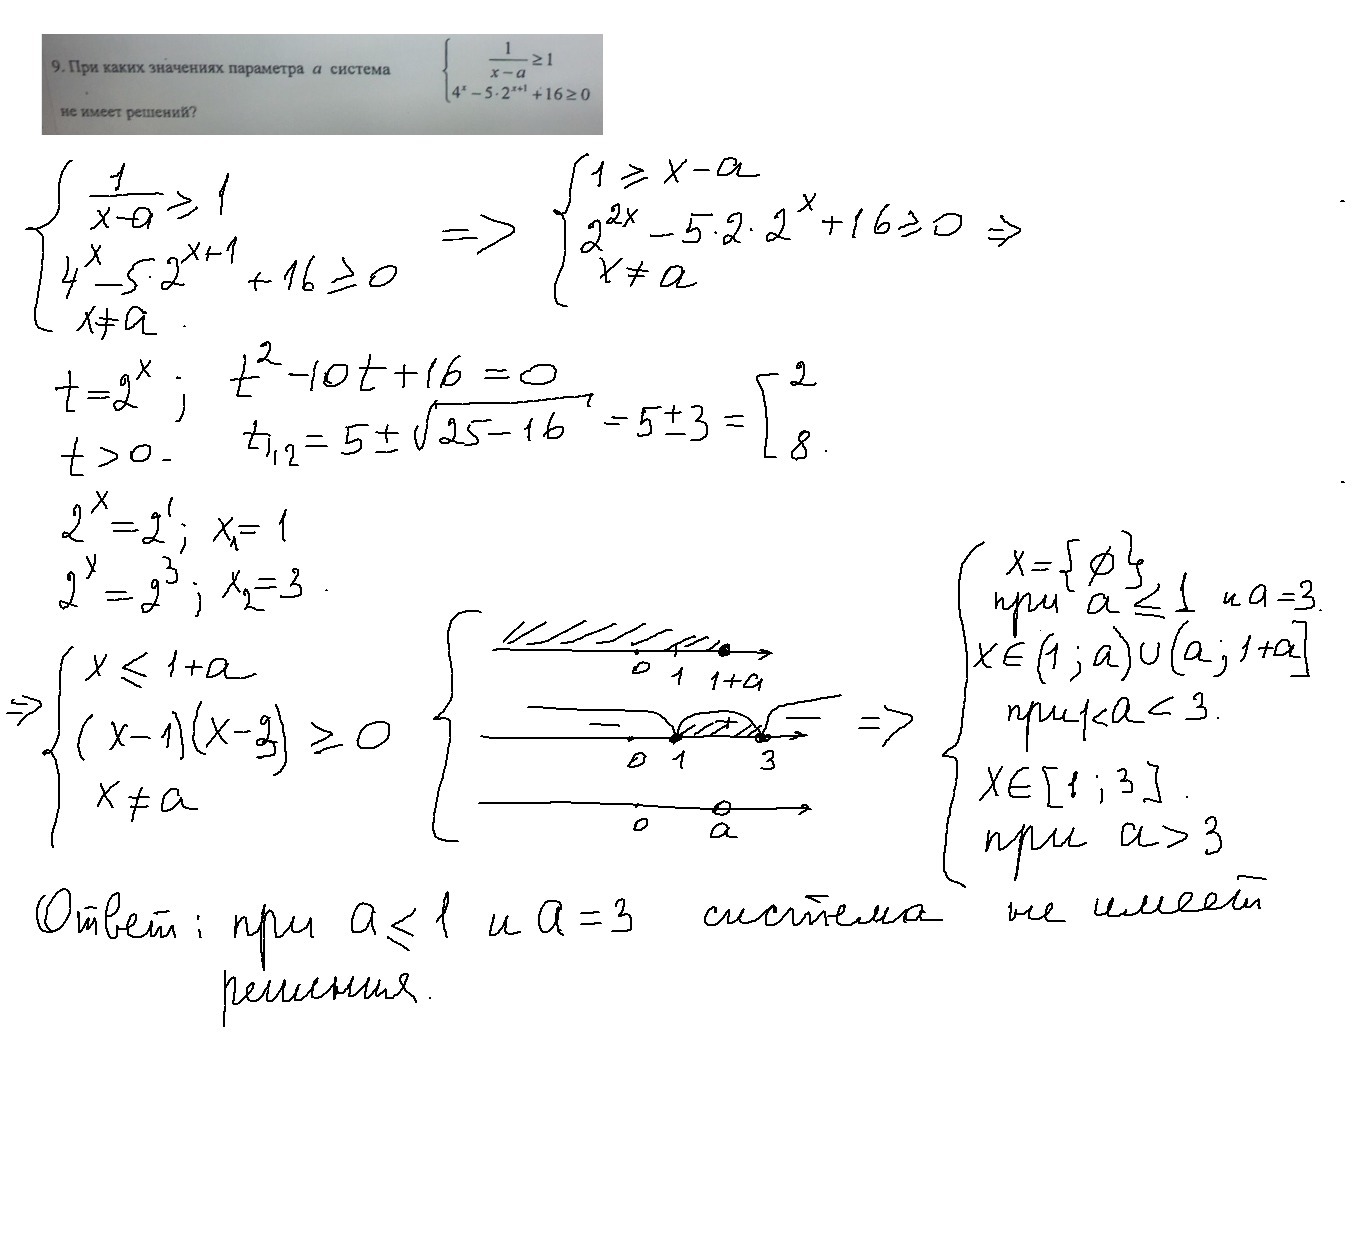 9. При каких значениях параметра a система
{ 1/(x − a) ≥ 1
{ 4^x − 5·2^(x+1) + 16 ≥ 0
не имеет решений?
{ 1/(x−a) ≥ 1
{ 4^x − 5·2^(x+1) + 16 ≥ 0
{ x ≠ a .
=> { 1 ≥ x − a
{ 2^(2x) − 5·2·2^x + 16 ≥ 0 =>
{ x ≠ a
t = 2^x ; t² − 10t + 16 = 0
t > 0 . t₁,₂ = 5 ± √(25−16) = 5 ± 3 = [ 2
8 .
2^x = 2^1 ; x₁ = 1
2^x = 2^3 ; x₂ = 3 .
=> { x ≤ 1+a
{ (x−1)(x−3) ≥ 0
{ x ≠ a
{ 0 1 1+a
− + −
0 1 3
0 a
=> { x = {∅}
при a ≤ 1 и a = 3.
x ∈ (1 ; a) ∪ (a ; 1+a]
при 1 < a < 3.
x ∈ [1 ; 3] .
при a > 3
Ответ: при a ≤ 1 и a = 3 система не имеет
решения.